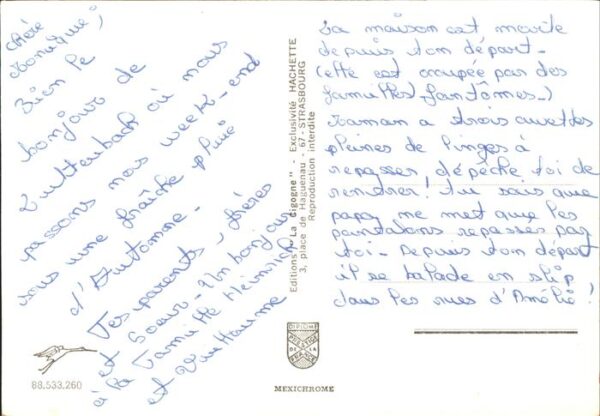 Chère
Monique,
Bien le
bonjour de
où nous
passons nous week-end
sous une fraîche pluie
d'Automne.
Tes parents, frères
et Soeur - Un bonjour
à la Famille Heinrich
et Guillaume
La maison est morte
depuis ton départ -
(elle est occupée par des
familles-fantômes -)
Maman a trois cuvettes
pleines de linges à
repasser, dépêche toi de
rentrer! Tu sais que
papa ne met que les
pantalons repassés par
toi - Depuis ton départ
il se balade en slip
dans les rues d'Amélie!
Editions "La Cigogne" - Exclusivité HACHETTE
3, place de Haguenau - 67 - STRASBOURG
Reproduction interdite
DIPLOME
PRESTIGE
DE LA
FRANCE
88.533.260
MEXICHROME